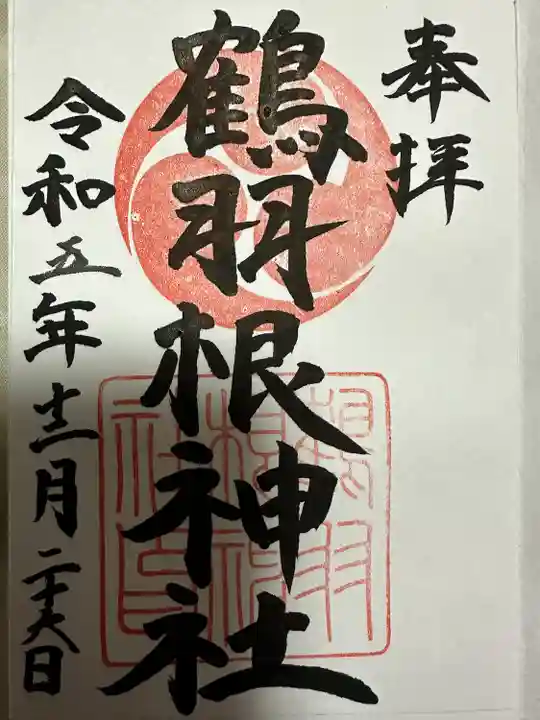 奉拝
鶴羽根神社
令和五年十二月二十六日
鶴羽根神社印